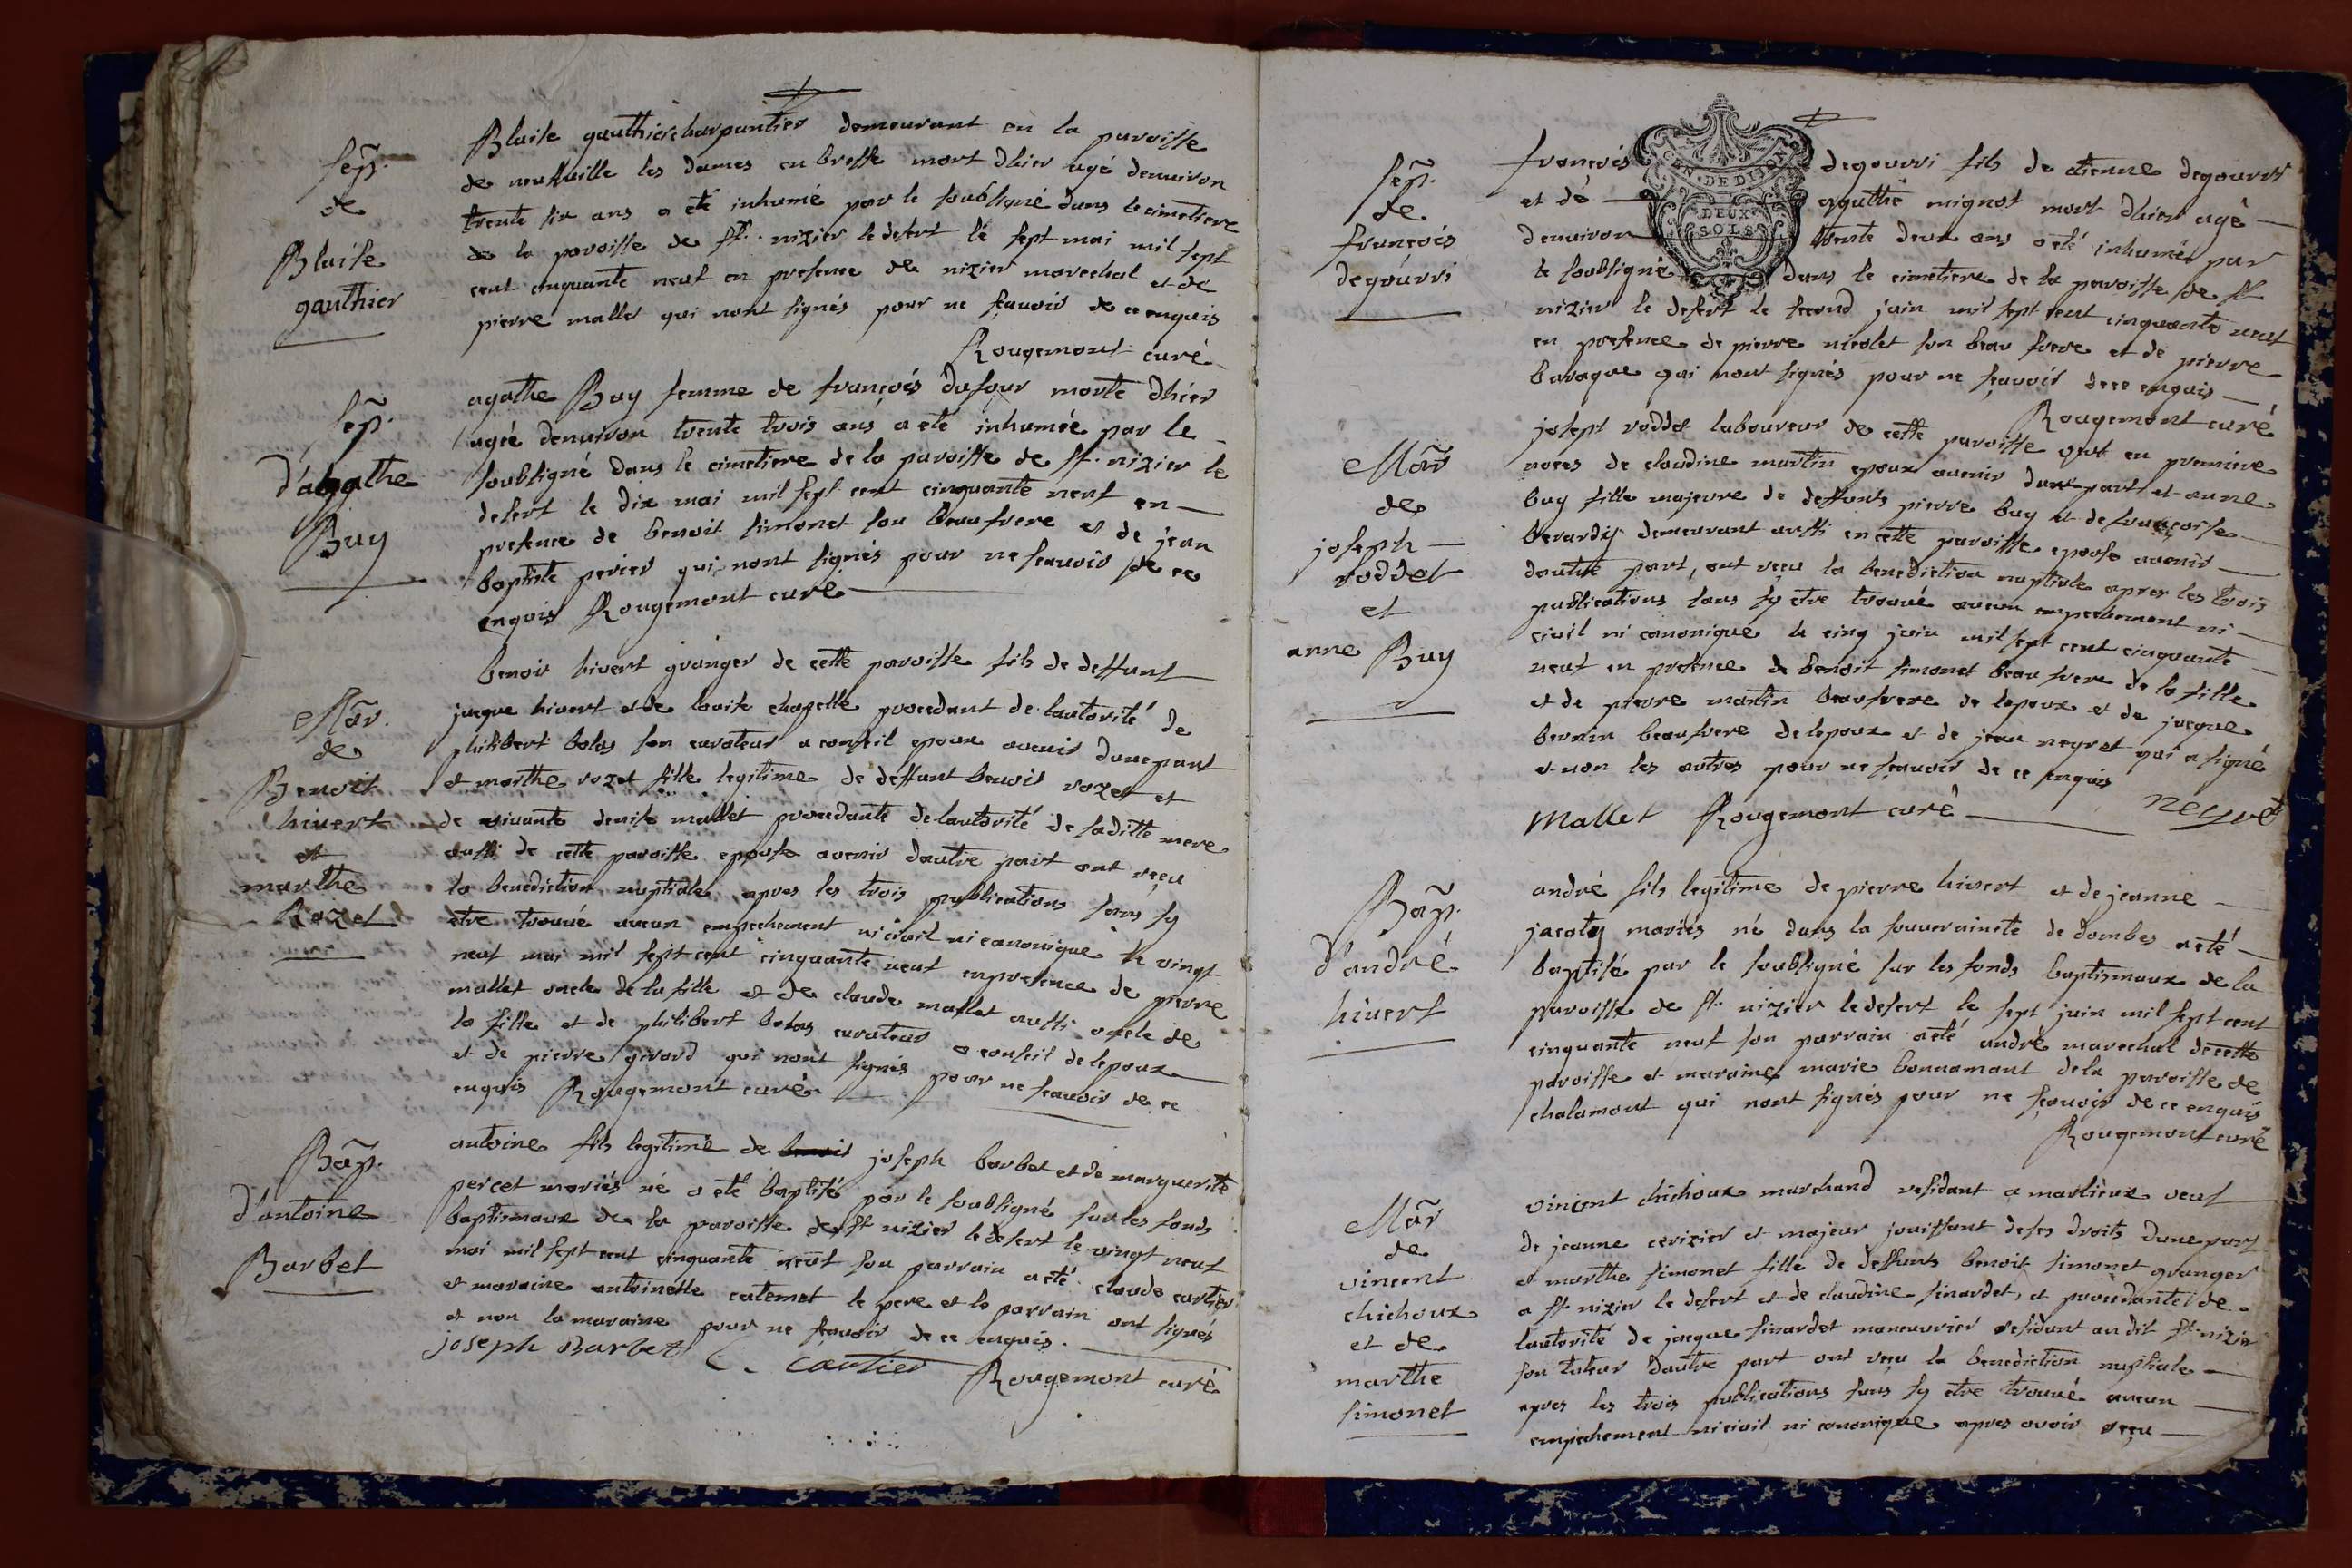 Sep.
de
Blaise
gauthier
Blaise gauthier charpantier demeurant en la paroisse
de neufville les dames en bresse mort dhier agé denuiron
trente six ans a eté inhumé par le soubsigné dans le cimetiere
de la paroisse de st. nizier le desert le sept mai mil sept
cent cinquante neuf en presence de nizier marechal et de
pierre mallet qui nont signés pour ne scauoir de ce enquis
Rougemont curé
Sep.
d'agathe
Buy
agathe Buy femme de françois dufour morte dhier
agée denuiron trente trois ans a eté inhumée par le
soubsigné dans le cimetiere de la paroisse de st. nizier le
desert le dix mai mil sept cent cinquante neuf en
presence de benoit simonet son beaufrere et de jean
baptiste perier qui nont signés pour ne scauoir de ce
enquis Rougemont curé
Mar.
de
Benoit
hiuert
et
marthe
Rozet
benoit hivert granger de cette paroisse fils de deffunt
jacque hivert et de louise chapelle procedant de lautorité de
philibert bolas son curateur a conseil epoux auenir dune part
et marthe rozet fille legitime de deffunt benoit rozet et
de viuante denise mallet procedante de lautorité de saditte mere
aussi de cette paroisse epouse auenir dautre part ont reçu
la benediction nuptiale apres les trois publications sans sy
etre trouué aucun empechement ni ciuil ni canonique le vingt
neuf mai mil sept cent cinquante neuf en presence de pierre
mallet oncle de la fille et de claude mallet aussi oncle de
la fille et de philibert bolas curateur a conseil de lepoux
et de pierre girard qui nont signés pour ne scauoir de ce
enquis Rougemont curé
Bap.
d'antoine
Barbet
antoine fils legitime de benoit joseph barbet et de marguerite
percet mariés né a eté baptisé par le soubsigné sur les fonds
baptismaux de la paroisse de st nizier le desert le vingt neuf
mai mil sept cent cinquante neuf son parrain a eté claude cartier
et maraine antoinette catemet le pere et le parrain ont signés
et non la maraine pour ne scauoir de ce enquis.
joseph Barbet C. Cartier Rougemont curé
Sep.
de
françois
degourri
GEN. DE DIJON
DEUX
SOLS
françois degourri fils de etienne degourri
et dé agathe mignot mort dhier agé
denuiron trente deux ans a eté inhumé par
le soubsigné dans le cimetiere de la paroisse de st
nizier le desert le second juin mil sept cent cinquante neuf
en presence de pierre nicolet son beau frere et de pierre
baraque qui nont signés pour ne scauoir de ce enquis
Rougemont curé
Mar
de
joseph
roddet
et
anne Buy
josept roddet laboureur de cette paroisse veuf en premiere
noces de claudine martin epoux auenir dune part et anne
buy fille majeure de deffunts pierre buy et de françoise
berardy demeurant aussi en cette paroisse epouse auenir
dautre part, ont reçu la benediction nuptiale apres les trois
publications sans sy etre trouué aucun empechement ni
ciuil ni canonique le cinq juin mil sept cent cinquante
neuf en presence de benoit simonet beau frere de la fille
et de pierre martin beaufrere de lepoux et de jacque
bernin beaufrere de lepoux et de jean neyret qui a signé
et non les autres pour ne scauoir de ce enquis
Mallet Rougemont curé neyret
Bap.
d'andré
hiuert
andré fils legitime de pierre hivert et de jeanne
jacoty mariés né dans la souueraineté de dombes a eté
baptisé par le soubsigné sur les fonds baptismaux de la
paroisse de st. nizier le desert le sept juin mil sept cent
cinquante neuf son parrain a eté andré marechal de cette
paroisse et maraine marie bonnamant de la paroisse de
chalamont qui nont signés pour ne scauoir de ce enquis
Rougemont curé
Mar
de
vincent
chichoux
et de
marthe
simonet
vincent chichoux marchand residant a marlieux veuf
de jeanne cerizier et majeur jouissant de ses droits dune part
et marthe simonet fille de deffunts benoit simonet granger
a st nizier le desert et de claudine sinardet, et procedante de
lautorité de jacque sinardet maneuvrier residant au dit st nizier
son tuteur dautre part ont reçu la benediction nuptiale
apres les trois publications sans sy etre trouué aucun
empechement ni ciuil ni canonique apres avoir reçu